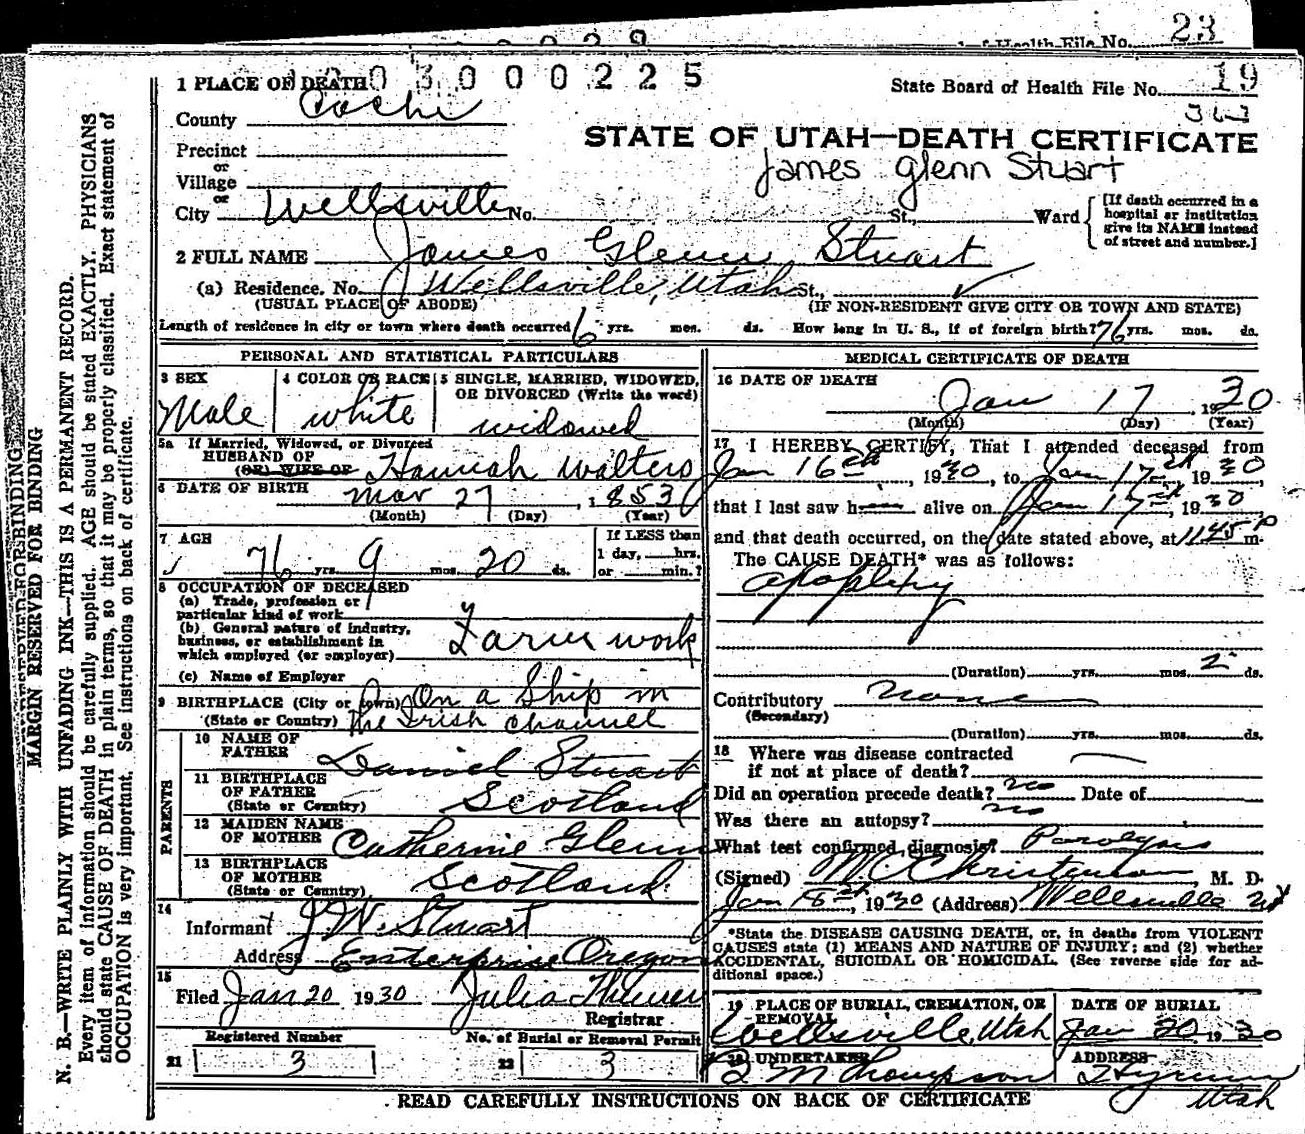 23
of Health File No.
1203000225
1 PLACE OF DEATH
State Board of Health File No. 19
County Cache
STATE OF UTAH—DEATH CERTIFICATE
Precinct
or
James Glenn Stuart
Village
or
City Wellsville No. St., Ward
[If death occurred in a
hospital or institution
give its NAME instead
of street and number.]
2 FULL NAME James Glenn Stuart
(a) Residence. No. Wellsville, Utah St.,
(USUAL PLACE OF ABODE) (IF NON-RESIDENT GIVE CITY OR TOWN AND STATE)
Length of residence in city or town where death occurred 6 yrs. mos. ds. How long in U. S., if of foreign birth? 76 yrs. mos. ds.
PERSONAL AND STATISTICAL PARTICULARS
3 SEX
Male
4 COLOR OR RACE
white
5 SINGLE, MARRIED, WIDOWED,
OR DIVORCED (Write the word)
widowed
5a If Married, Widowed, or Divorced
HUSBAND OF
(OR) WIFE OF Hannah Walters
6 DATE OF BIRTH Mar 27, 1853
(Month) (Day) (Year)
7 AGE
76 yrs. 9 mos. 20 ds.
If LESS than
1 day, hrs.
or min.?
8 OCCUPATION OF DECEASED
(a) Trade, profession or
particular kind of work
(b) General nature of industry,
business, or establishment in
which employed (or employer)
Farm work
(c) Name of Employer
9 BIRTHPLACE (City or town) On a Ship in
(State or Country) the Irish channel
PARENTS
10 NAME OF
FATHER Daniel Stuart
11 BIRTHPLACE
OF FATHER
(State or Country) Scotland
12 MAIDEN NAME
OF MOTHER Catherine Glenn
13 BIRTHPLACE
OF MOTHER
(State or Country) Scotland
14
Informant J. W. Stuart
Address Enterprise Oregon
15
Filed Jan 20 1930 Julia
Registrar
Registered Number No. of Burial or Removal Permit
21 3 22 3
MEDICAL CERTIFICATE OF DEATH
16 DATE OF DEATH
Jan 17, 1930
(Month) (Day) (Year)
17 I HEREBY CERTIFY, That I attended deceased from
Jan 16th, 1930, to Jan 17th, 1930,
that I last saw h alive on Jan 17th, 1930
and that death occurred, on the date stated above, at 11.45 P m.
The CAUSE DEATH* was as follows:
apoplexy
(Duration) yrs. mos. 2 ds.
Contributory none
(Secondary)
(Duration) yrs. mos. ds.
18 Where was disease contracted
if not at place of death?
Did an operation precede death? no Date of
Was there an autopsy? no
What test confirmed diagnosis?
(Signed) M. C. Christenson, M. D.
Jan 18th, 1930 (Address) Wellsville Ut
*State the DISEASE CAUSING DEATH, or, in deaths from VIOLENT
CAUSES state (1) MEANS AND NATURE OF INJURY; and (2) whether
ACCIDENTAL, SUICIDAL OR HOMICIDAL. (See reverse side for ad-
ditional space.)
19 PLACE OF BURIAL, CREMATION, OR
REMOVAL
Wellsville, Utah
DATE OF BURIAL
Jan 20 1930
20 UNDERTAKER
M Thompson
ADDRESS
Hyrum
Utah
READ CAREFULLY INSTRUCTIONS ON BACK OF CERTIFICATE
MARGIN RESERVED FOR BINDING
N. B.—WRITE PLAINLY WITH UNFADING INK—THIS IS A PERMANENT RECORD.
Every item of information should be carefully supplied. AGE should be stated EXACTLY. PHYSICIANS
should state CAUSE OF DEATH in plain terms, so that it may be properly classified. Exact statement of
OCCUPATION is very important. See instructions on back of certificate.